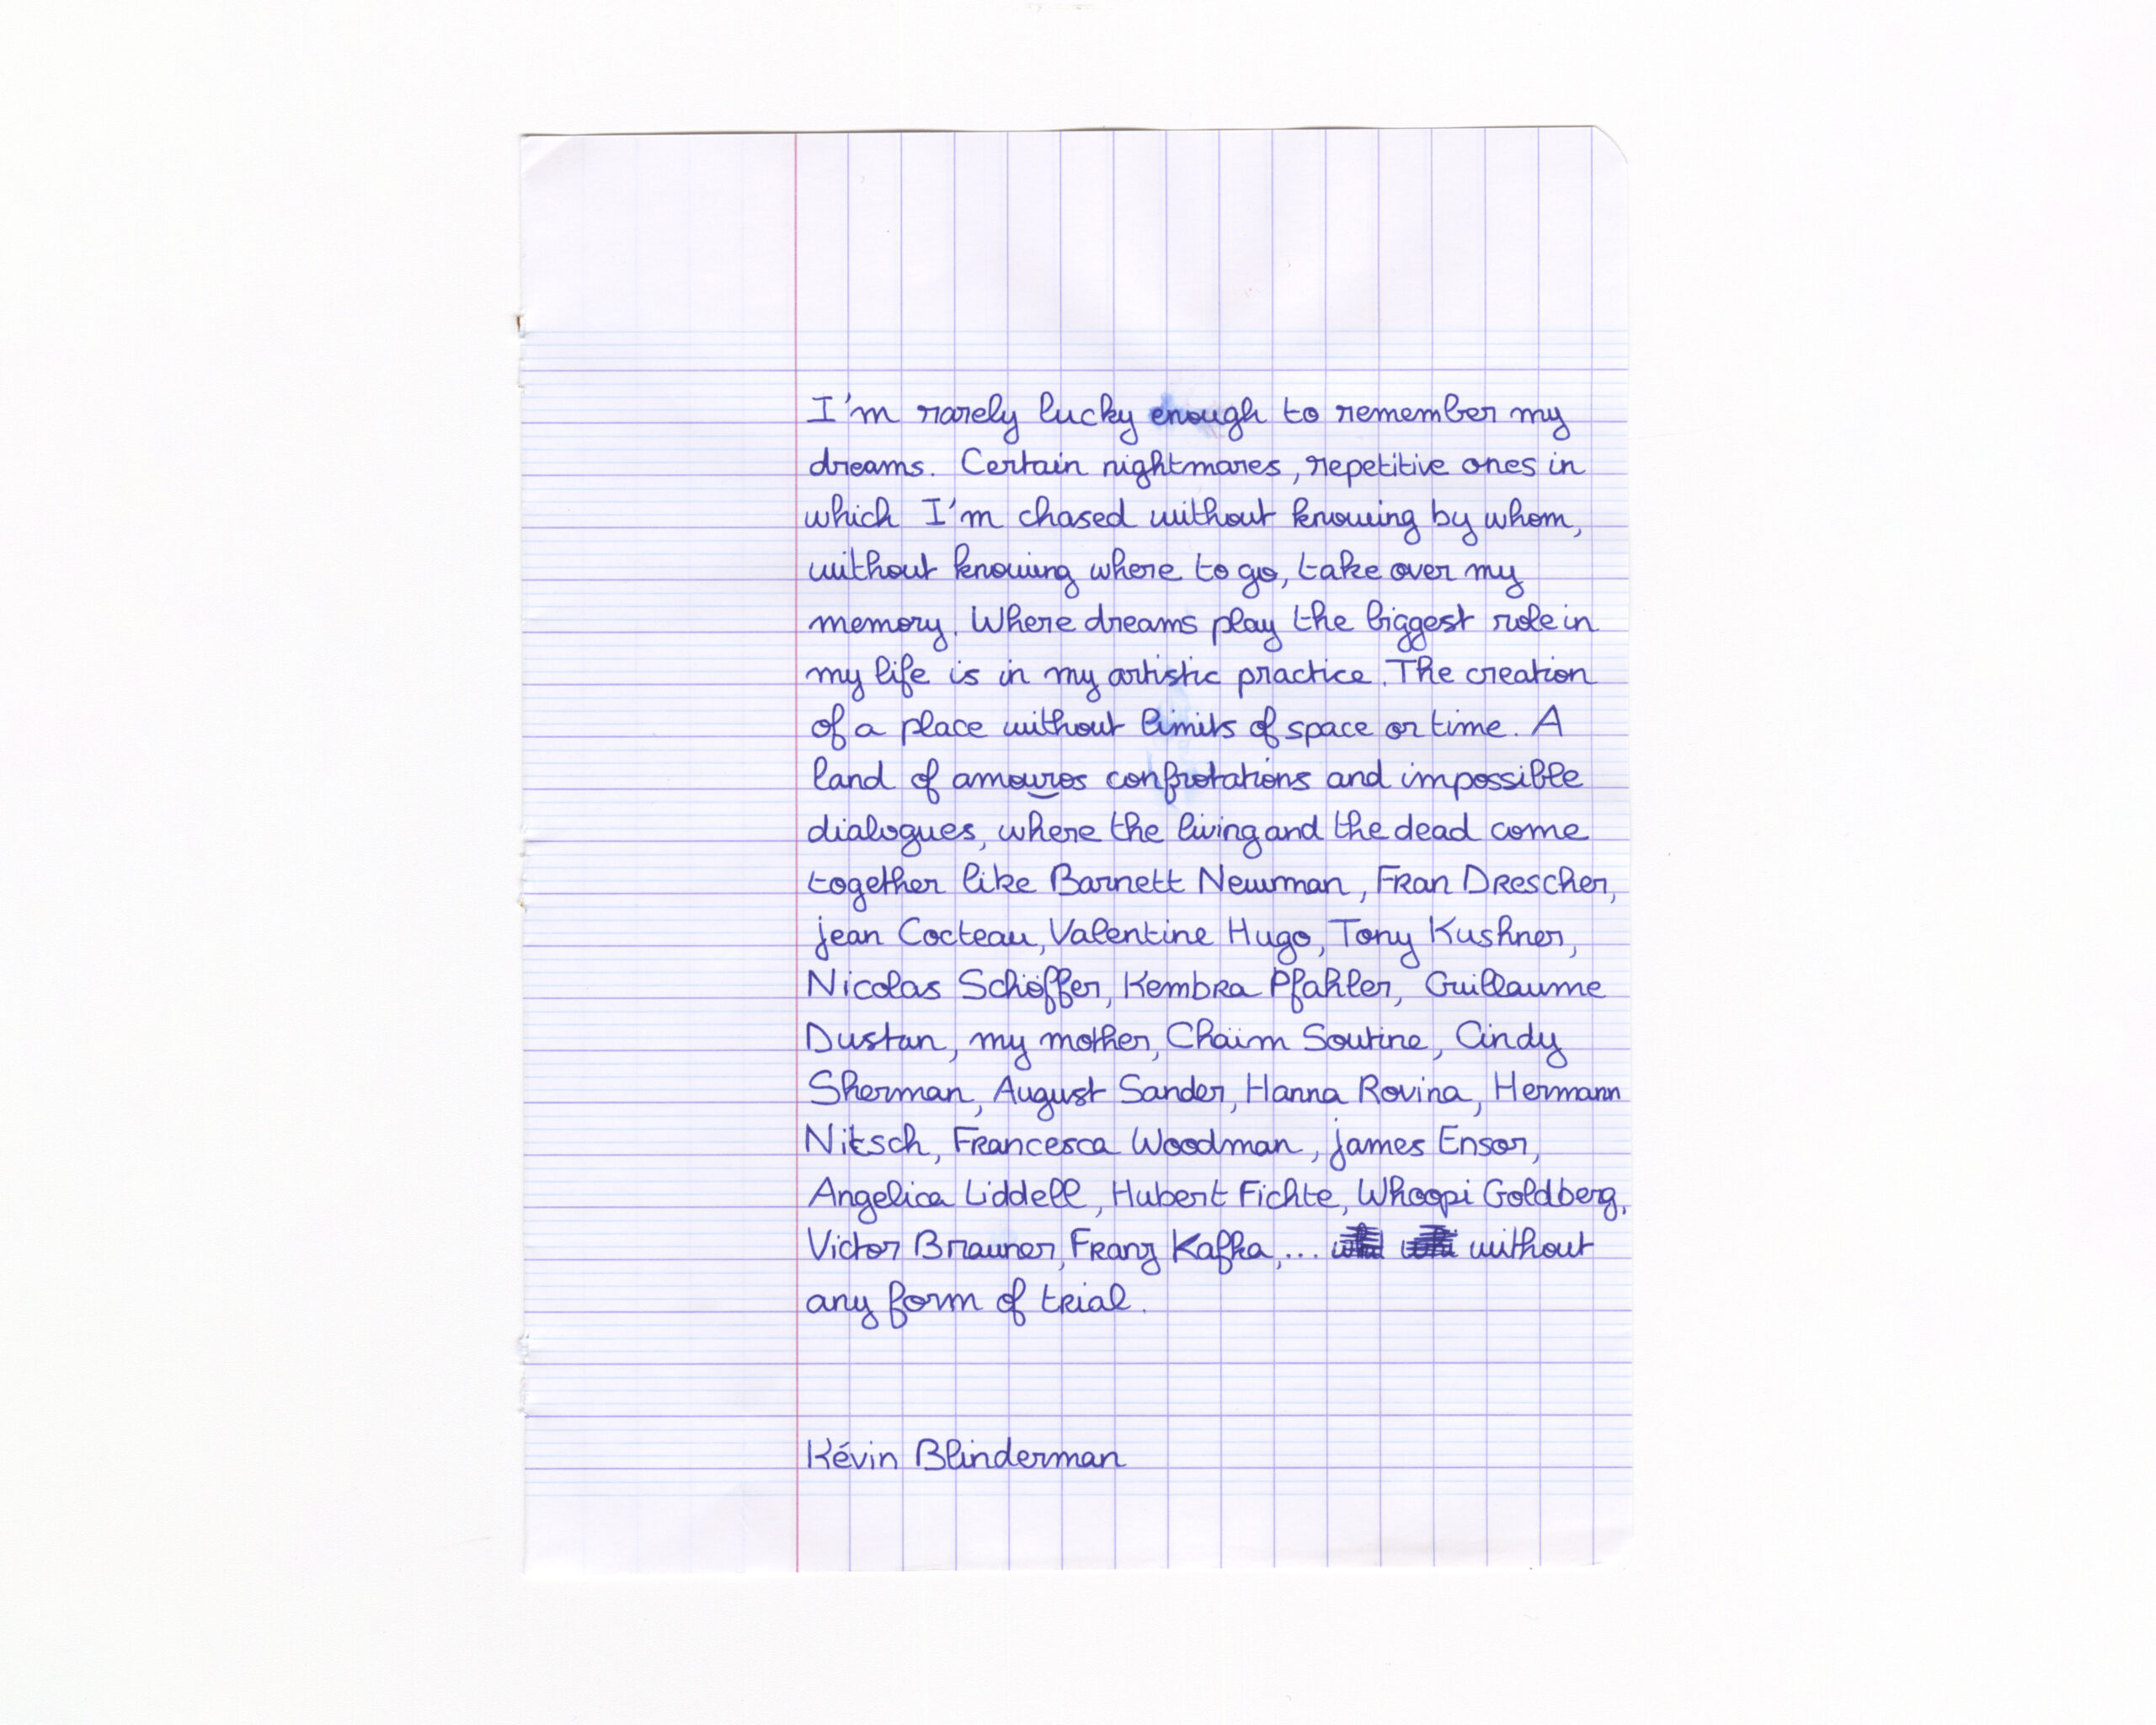 I'm rarely lucky enough to remember my
dreams. Certain nightmares, repetitive ones in
which I'm chased without knowing by whom,
without knowing where to go, take over my
memory. Where dreams play the biggest role in
my life is in my artistic practice. The creation
of a place without limits of space or time. A
land of amouros confrotations and impossible
dialogues, where the living and the dead come
together like Barnett Newman, Fran Drescher,
jean Cocteau, Valentine Hugo, Tony Kushner,
Nicolas Schöffer, Kembra Pfahler, Guillaume
Dustan, my mother, Chaïm Soutine, Cindy
Sherman, August Sander, Hanna Rovina, Hermann
Nitsch, Francesca Woodman, james Ensor,
Angelica Liddell, Hubert Fichte, Whoopi Goldberg,
Victor Brauner, Franz Kafka,... without
any form of trial.
Kévin Blinderman